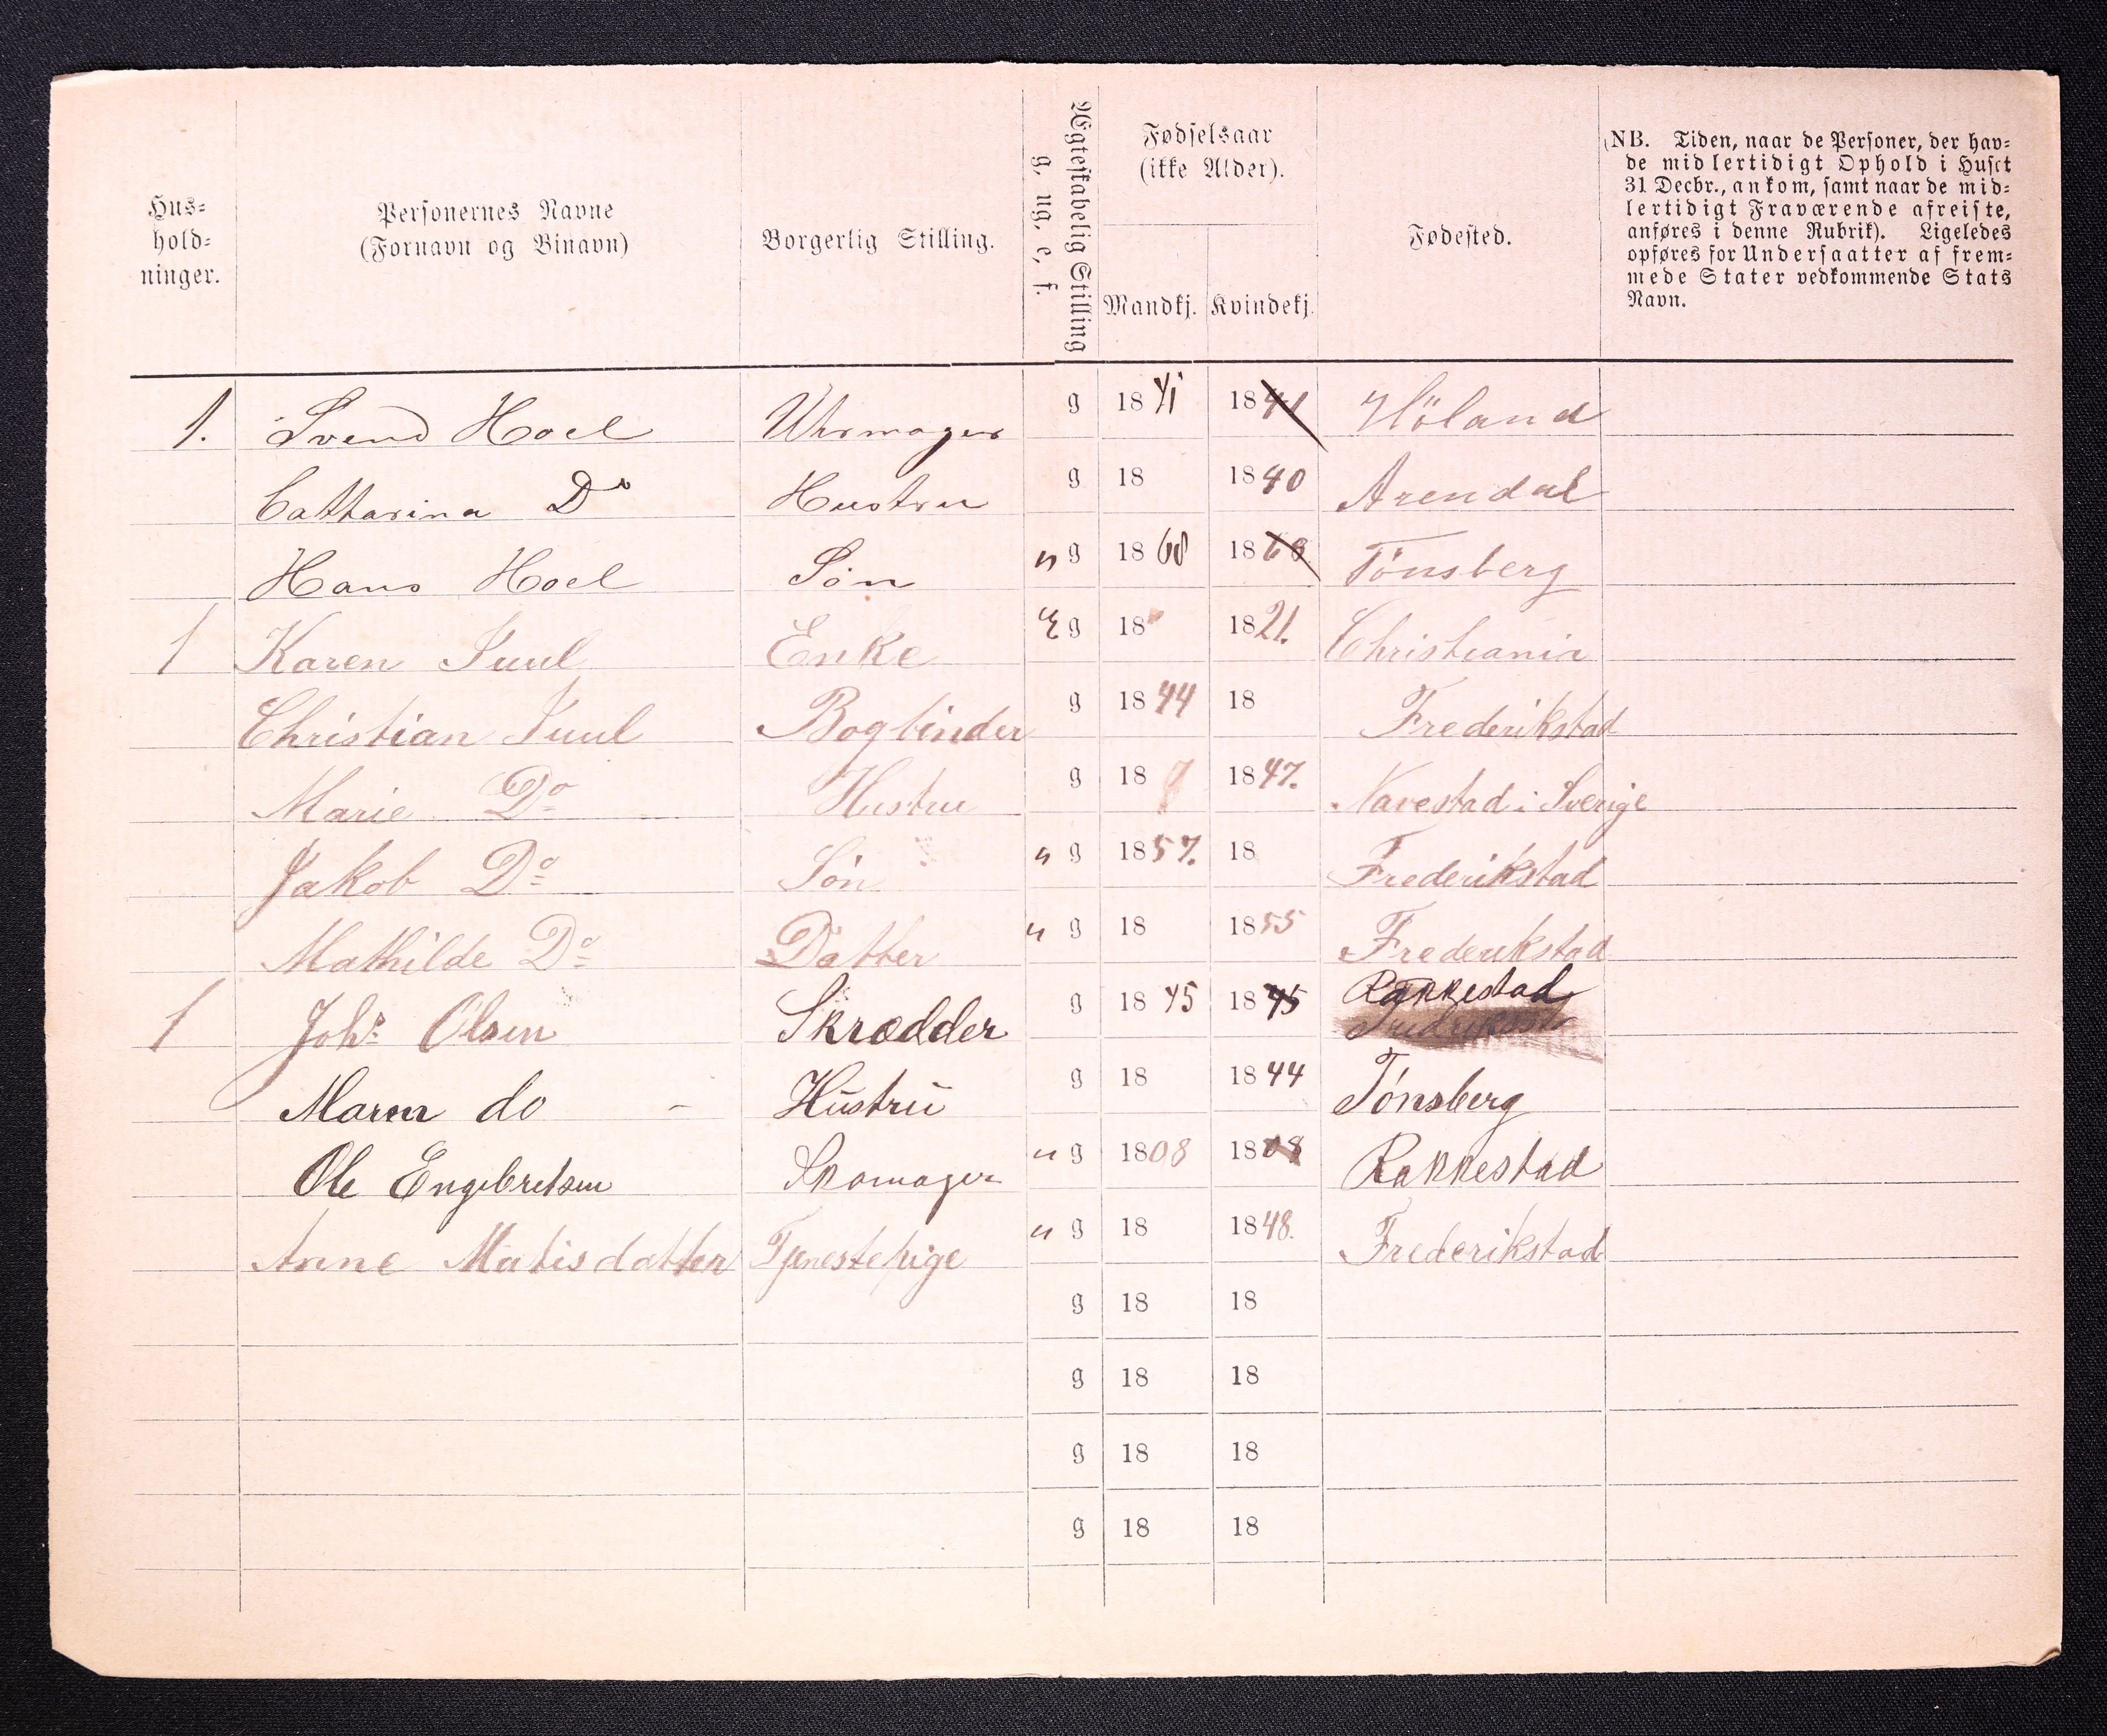 Hus=
hold=
ninger.
Personernes Navne
(Fornavn og Binavn)
Borgerlig Stilling.
Ægteskabelig Stilling
g, ug, e, f.
Fødselsaar
(ikke Alder).
Mandkj. Kvindekj.
Fødested.
NB. Tiden, naar de Personer, der hav=
de midlertidigt Ophold i Huset
31 Decbr., ankom, samt naar de mid=
lertidigt Fraværende afreiste,
anføres i denne Rubrik). Ligeledes
opføres for Undersaatter af frem=
mede Stater vedkommende Stats
Navn.
1. Svend Hoel Uhrmager g 1841 1841 Höland
Catharina Do Hustru g 18 1840 Arendal
Hans Hoel Søn ug 1868 1868 Tønsberg
1 Karen Juul Enke E g 18 1821. Christiania
Christian Juul Bogbinder g 1844 18 Frederikstad
Marie Do Hustru g 18 1847. Navestad i Sverige
Jakob Do Søn ug 1857. 18 Frederikstad
Mathilde Do Datter ug 18 1855 Frederikstad
1 Johs Olsen Skrædder g 1845 1845 Rakkestad
do Hustru g 18 1844 Tønsberg
Ole Engebretsen Skomager ug 1808 1808 Rakkestad
Anne Matisdatter Tjenestepige ug 18 1848. Frederikstad
g 18 18
g 18 18
g 18 18
g 18 18